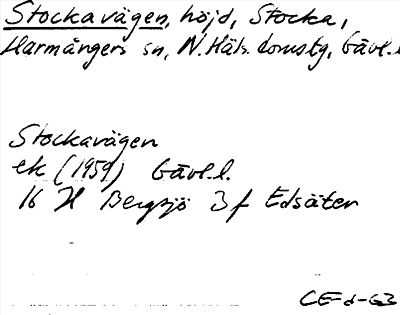 Stockavägen, höjd, Stocka,
Harmångers sn, N. Häls. domstg, Gävl. l
Stockavägen
ek (1959) Gävl. l.
16 H Bergsjö 3 f Edsäter
CE-d-63